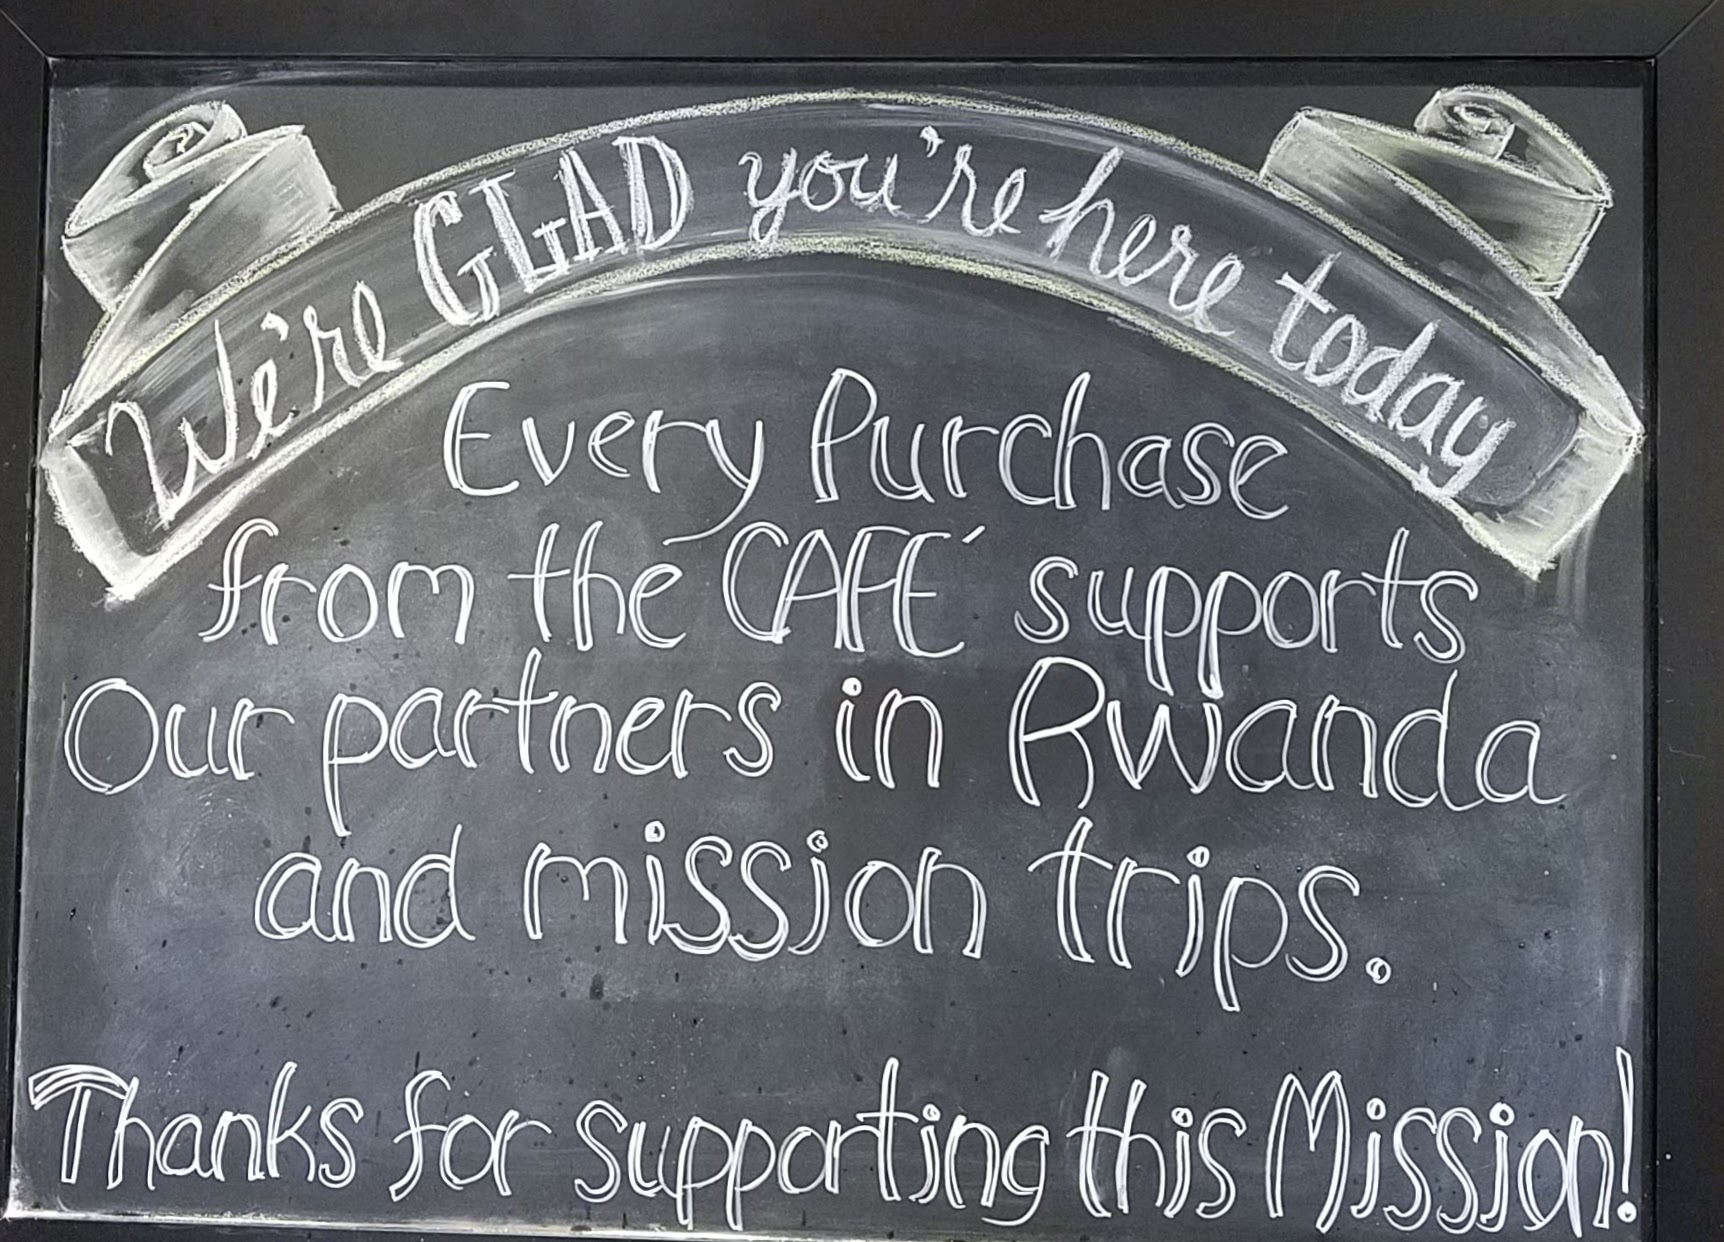 We're GLAD you're here today
Every Purchase
from the CAFÉ supports
Our partners in Rwanda
and mission trips.
Thanks for supporting this Mission!